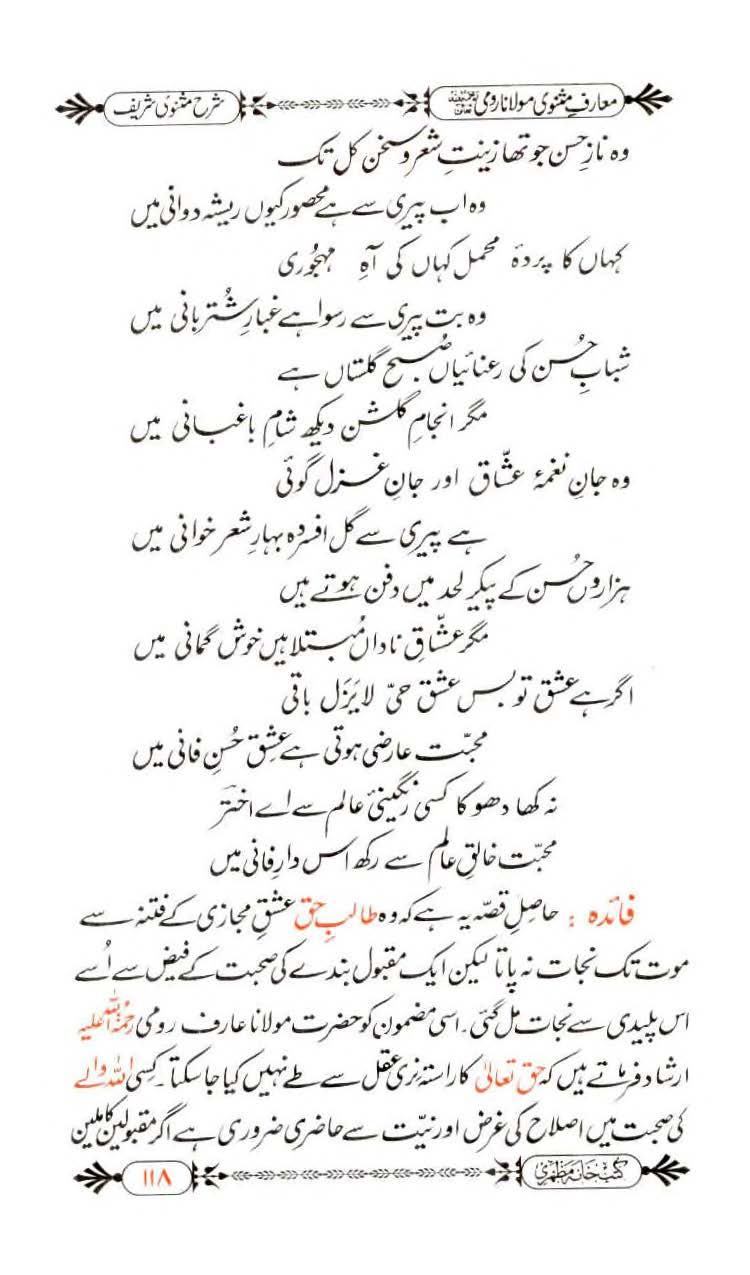 معارفِ مثنوی مولانا رومی رحمۃ اللہ تعالیٰ علیہ
شرح مثنوی شریف
وہ نازِ حسن جو تھا زینتِ شعر و سخن کل تک
وہ اب پیری سے ہے محصور کیوں ریشہ دوانی میں
کہاں کا پردۂ محمل کہاں کی آہِ مہجُوری
وہ بت پیری سے رسوا ہے غبارِ شُتر بانی میں
شبابِ حُسن کی رعنائیاں صُبحِ گلستاں ہے
مگر انجامِ گلشن دیکھ شامِ باغبانی میں
وہ جانِ نغمۂ عشّاق اور جانِ غزل گوئی
ہے پیری سے گل افسردہ بہارِ شعر خوانی میں
ہزاروں حُسن کے پیکر لحد میں دفن ہوتے ہیں
مگر عشّاقِ ناداں مُبتلا ہیں خوش گمانی میں
اگر ہے عشق تو بس عشق حیّ لایَزَل باقی
محبّت عارضی ہوتی ہے عشقِ حُسنِ فانی میں
نہ کھا دھوکا کسی رنگینیٔ عالم سے اے اخترؔ
محبّت خالقِ عالم سے رکھ اس دارِ فانی میں
فائدہ : حاصلِ قصّہ یہ ہے کہ وہ طالبِ حق عشقِ مجازی کے فتنہ سے
موت تک نجات نہ پاتا لیکن ایک مقبول بندے کی صحبت کے فیض سے اُسے
اس پلیدی سے نجات مل گئی۔ اسی مضمون کو حضرت مولانا عارف رومی رحمۃ اللہ علیہ
ارشاد فرماتے ہیں کہ حق تعالیٰ کا راستہ نری عقل سے طے نہیں کیا جا سکتا۔ کسی اللہ والے
کی صحبت میں اصلاح کی غرض اور نیّت سے حاضری ضروری ہے اگر مقبولین کاملین
کتب خانہ مظہری
۱۱۸